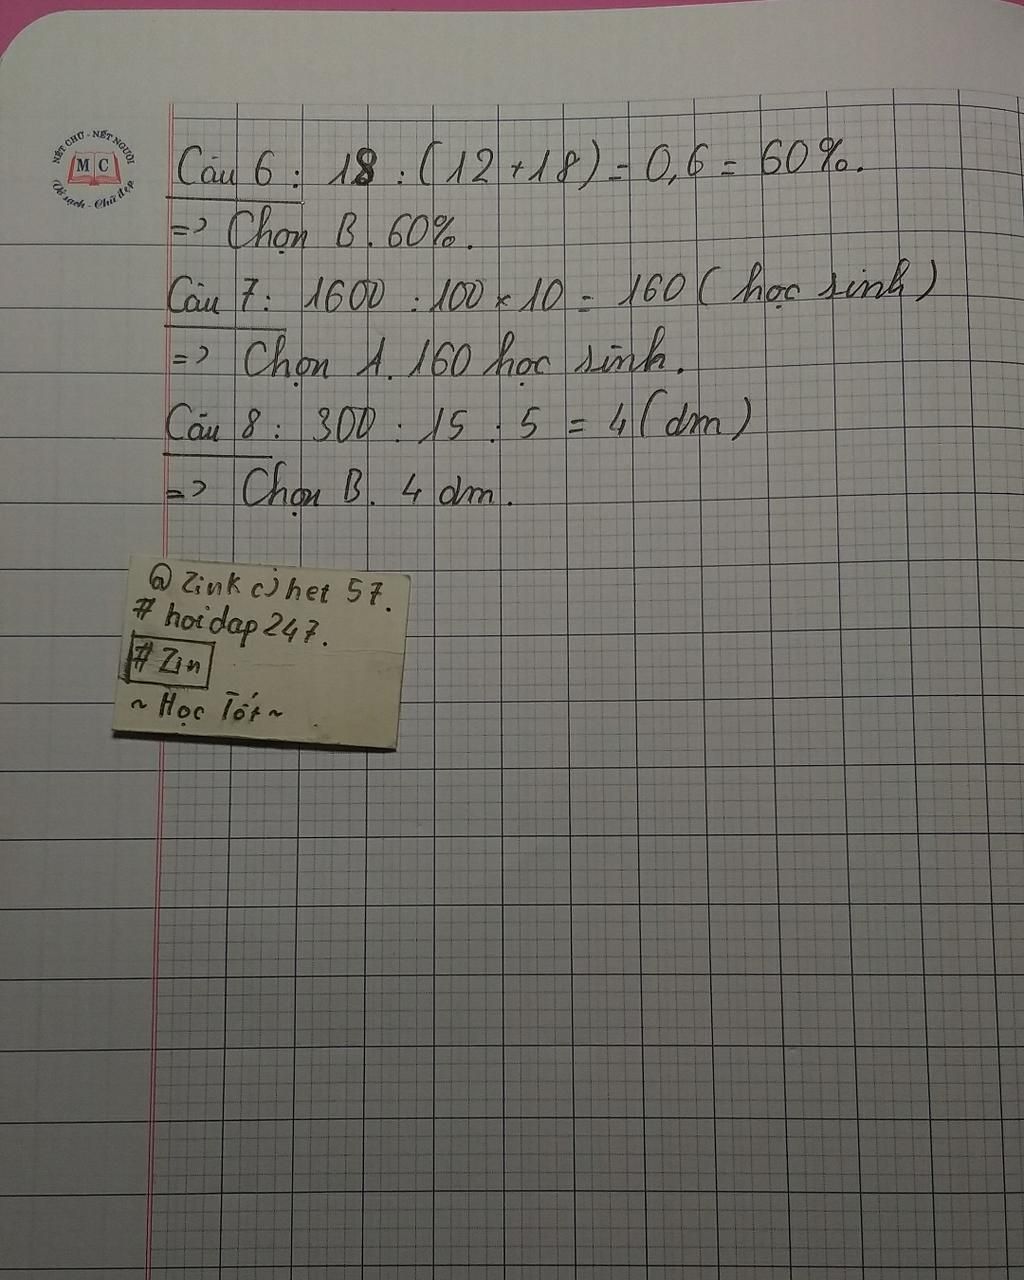 NÉT CHỮ - NẾT NGƯỜI
MC
Vở sạch - Chữ đẹp
Câu 6 : 18 : (12 + 18) = 0,6 = 60%.
=> Chọn B. 60%.
Câu 7 : 1600 : 100 x 10 = 160 ( học sinh )
=> Chọn A. 160 học sinh.
Câu 8 : 300 : 15 : 5 = 4 ( dm )
=> Chọn B. 4 dm.
@ Zink c) het 57.
# hoidap247.
# Zin
~ Học Tốt ~